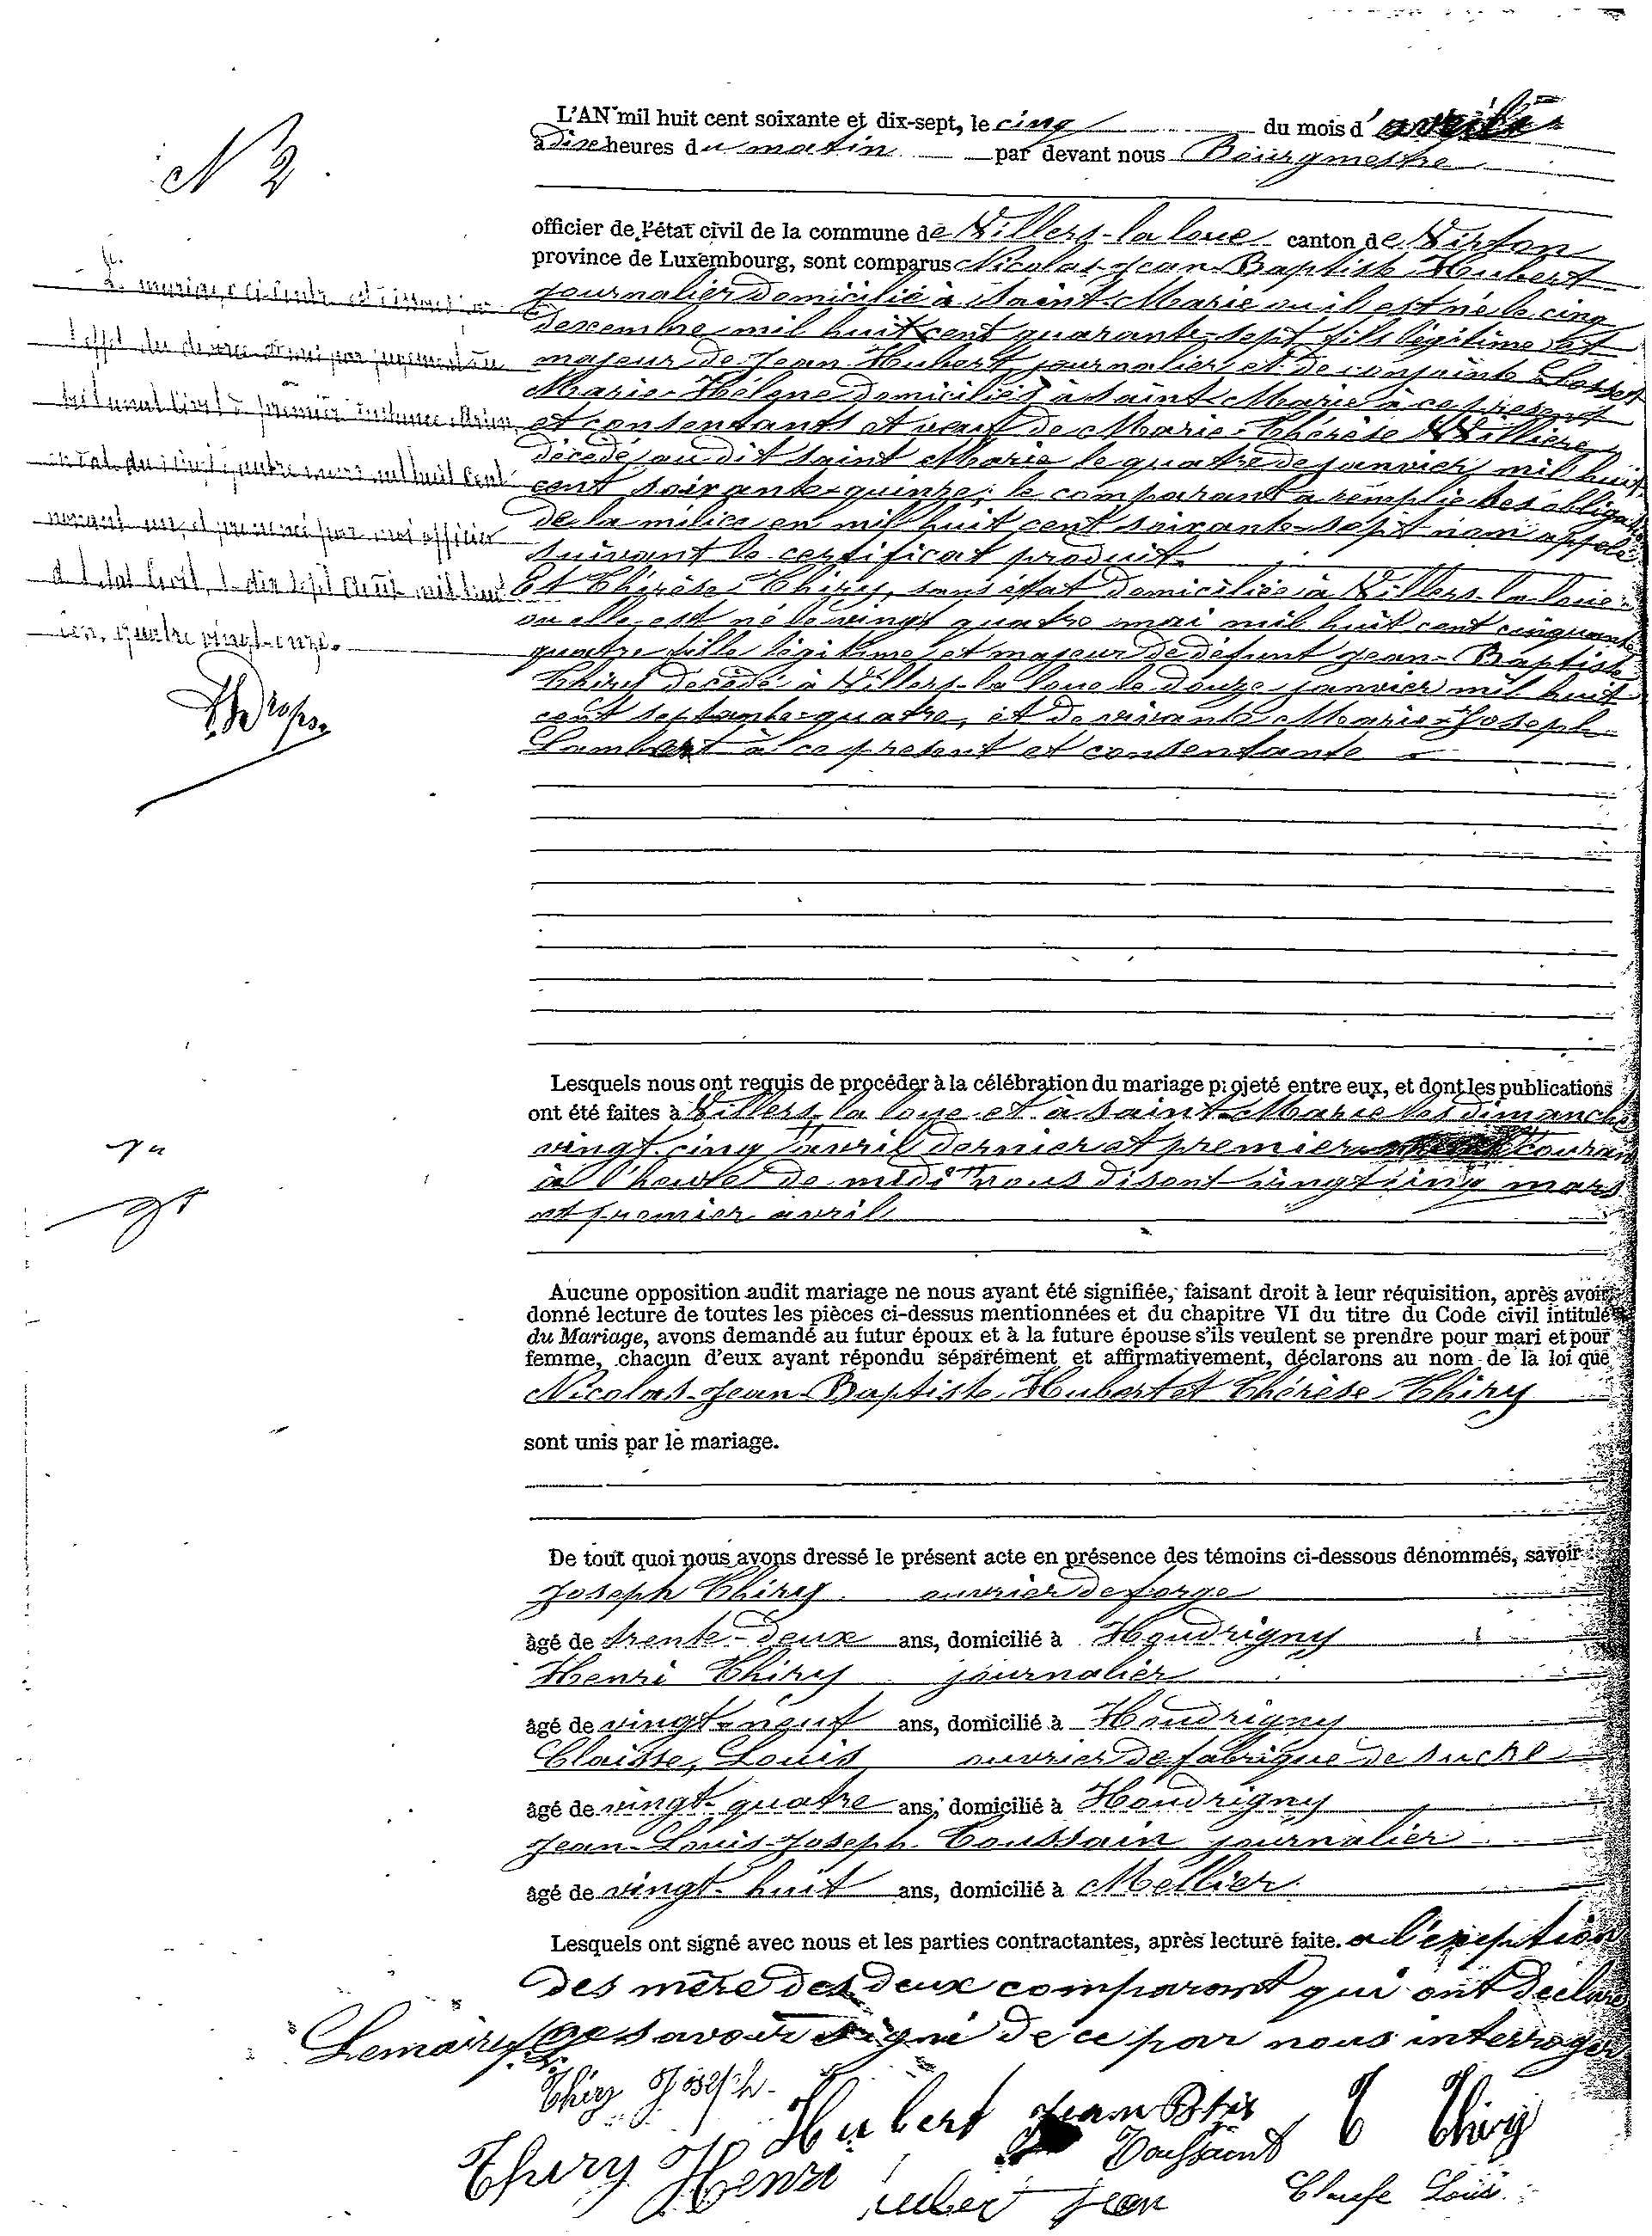 N 2.
L'AN mil huit cent soixante et dix-sept, le cinq du mois d' avril
à dix heures du matin par devant nous Bourgmestre
officier de l'état civil de la commune de Villers-la-loue canton de Virton
province de Luxembourg, sont comparus Nicolas-Jean-Baptiste Hubert
journalier domicilié à Saint-Marie ou il est né le cinq
decembre mil huit cent quarante-sept fils légitime et
majeur de Jean Hubert, journalier et de conjointe
Marie-Hélène domiciliés à saint Marie à ce present
et consentants et veuf de Marie-Thérèse
décédé au dit saint Marie le quatre de janvier mil huit
cent soixante-quinze; le comparant a remplie ses
de la milice en mil huit cent soixante-sept
suivant le certificat produit.
Et Thérèse Thiry, sans état domiciliée à Villers-la-loue
ou elle est né le vingt quatre mai mil huit cent cinquante
quatre fille légitime et majeur de défunt Jean-Baptiste
Thiry decédé à Villers-la-loue le douze janvier mil huit
cent septante-quatre, et de vivante Marie-Joseph
Lambert à ce present et consentante
Le mariage ci contre est dissous
l'effet du divorce par jugement du
tribunal civil de première instance
du vingt quatre mars mil huit cent
nonante un, et prononcé par moi officier
de l'état civil, le dix sept août mil huit
cen, quatre vingt-onze.
Lesquels nous ont requis de procéder à la célébration du mariage projeté entre eux, et dont les publications
ont été faites à Villers la loue et à saint-Marie les dimanche
vingt-cinq avril dernier et premier courant
à l'heure de midi nous disont vingt cinq mars
et premier avril
Aucune opposition audit mariage ne nous ayant été signifiée, faisant droit à leur réquisition, après avoir
donné lecture de toutes les pièces ci-dessus mentionnées et du chapitre VI du titre du Code civil intitulé
du Mariage, avons demandé au futur époux et à la future épouse s'ils veulent se prendre pour mari et pour
femme, chacun d'eux ayant répondu séparément et affirmativement, déclarons au nom de la loi que
Nicolas-Jean-Baptiste Hubert et Thérèse Thiry
sont unis par le mariage.
De tout quoi nous avons dressé le présent acte en présence des témoins ci-dessous dénommés, savoir
Joseph Thiry ouvrier de forge
âgé de trente-deux ans, domicilié à Houdrigny
Henri Thiry journalier
âgé de vingt-neuf ans, domicilié à Houdrigny
Claisse, Louis ouvrier de fabrique de sucre
âgé de vingt-quatre ans, domicilié à Houdrigny
Jean-Louis-Joseph Toussain journalier
âgé de vingt-huit ans, domicilié à Mellier
Lesquels ont signé avec nous et les parties contractantes, après lecture faite. a l'exeption
des mère des deux comparant qui ont declare
savoir signé de ce par nous interroger
Thiry Joseph
Hubert Jean Btis
T Thiry
Toussaint
Thiry Henri
Hubert Jean
Claisse Louis